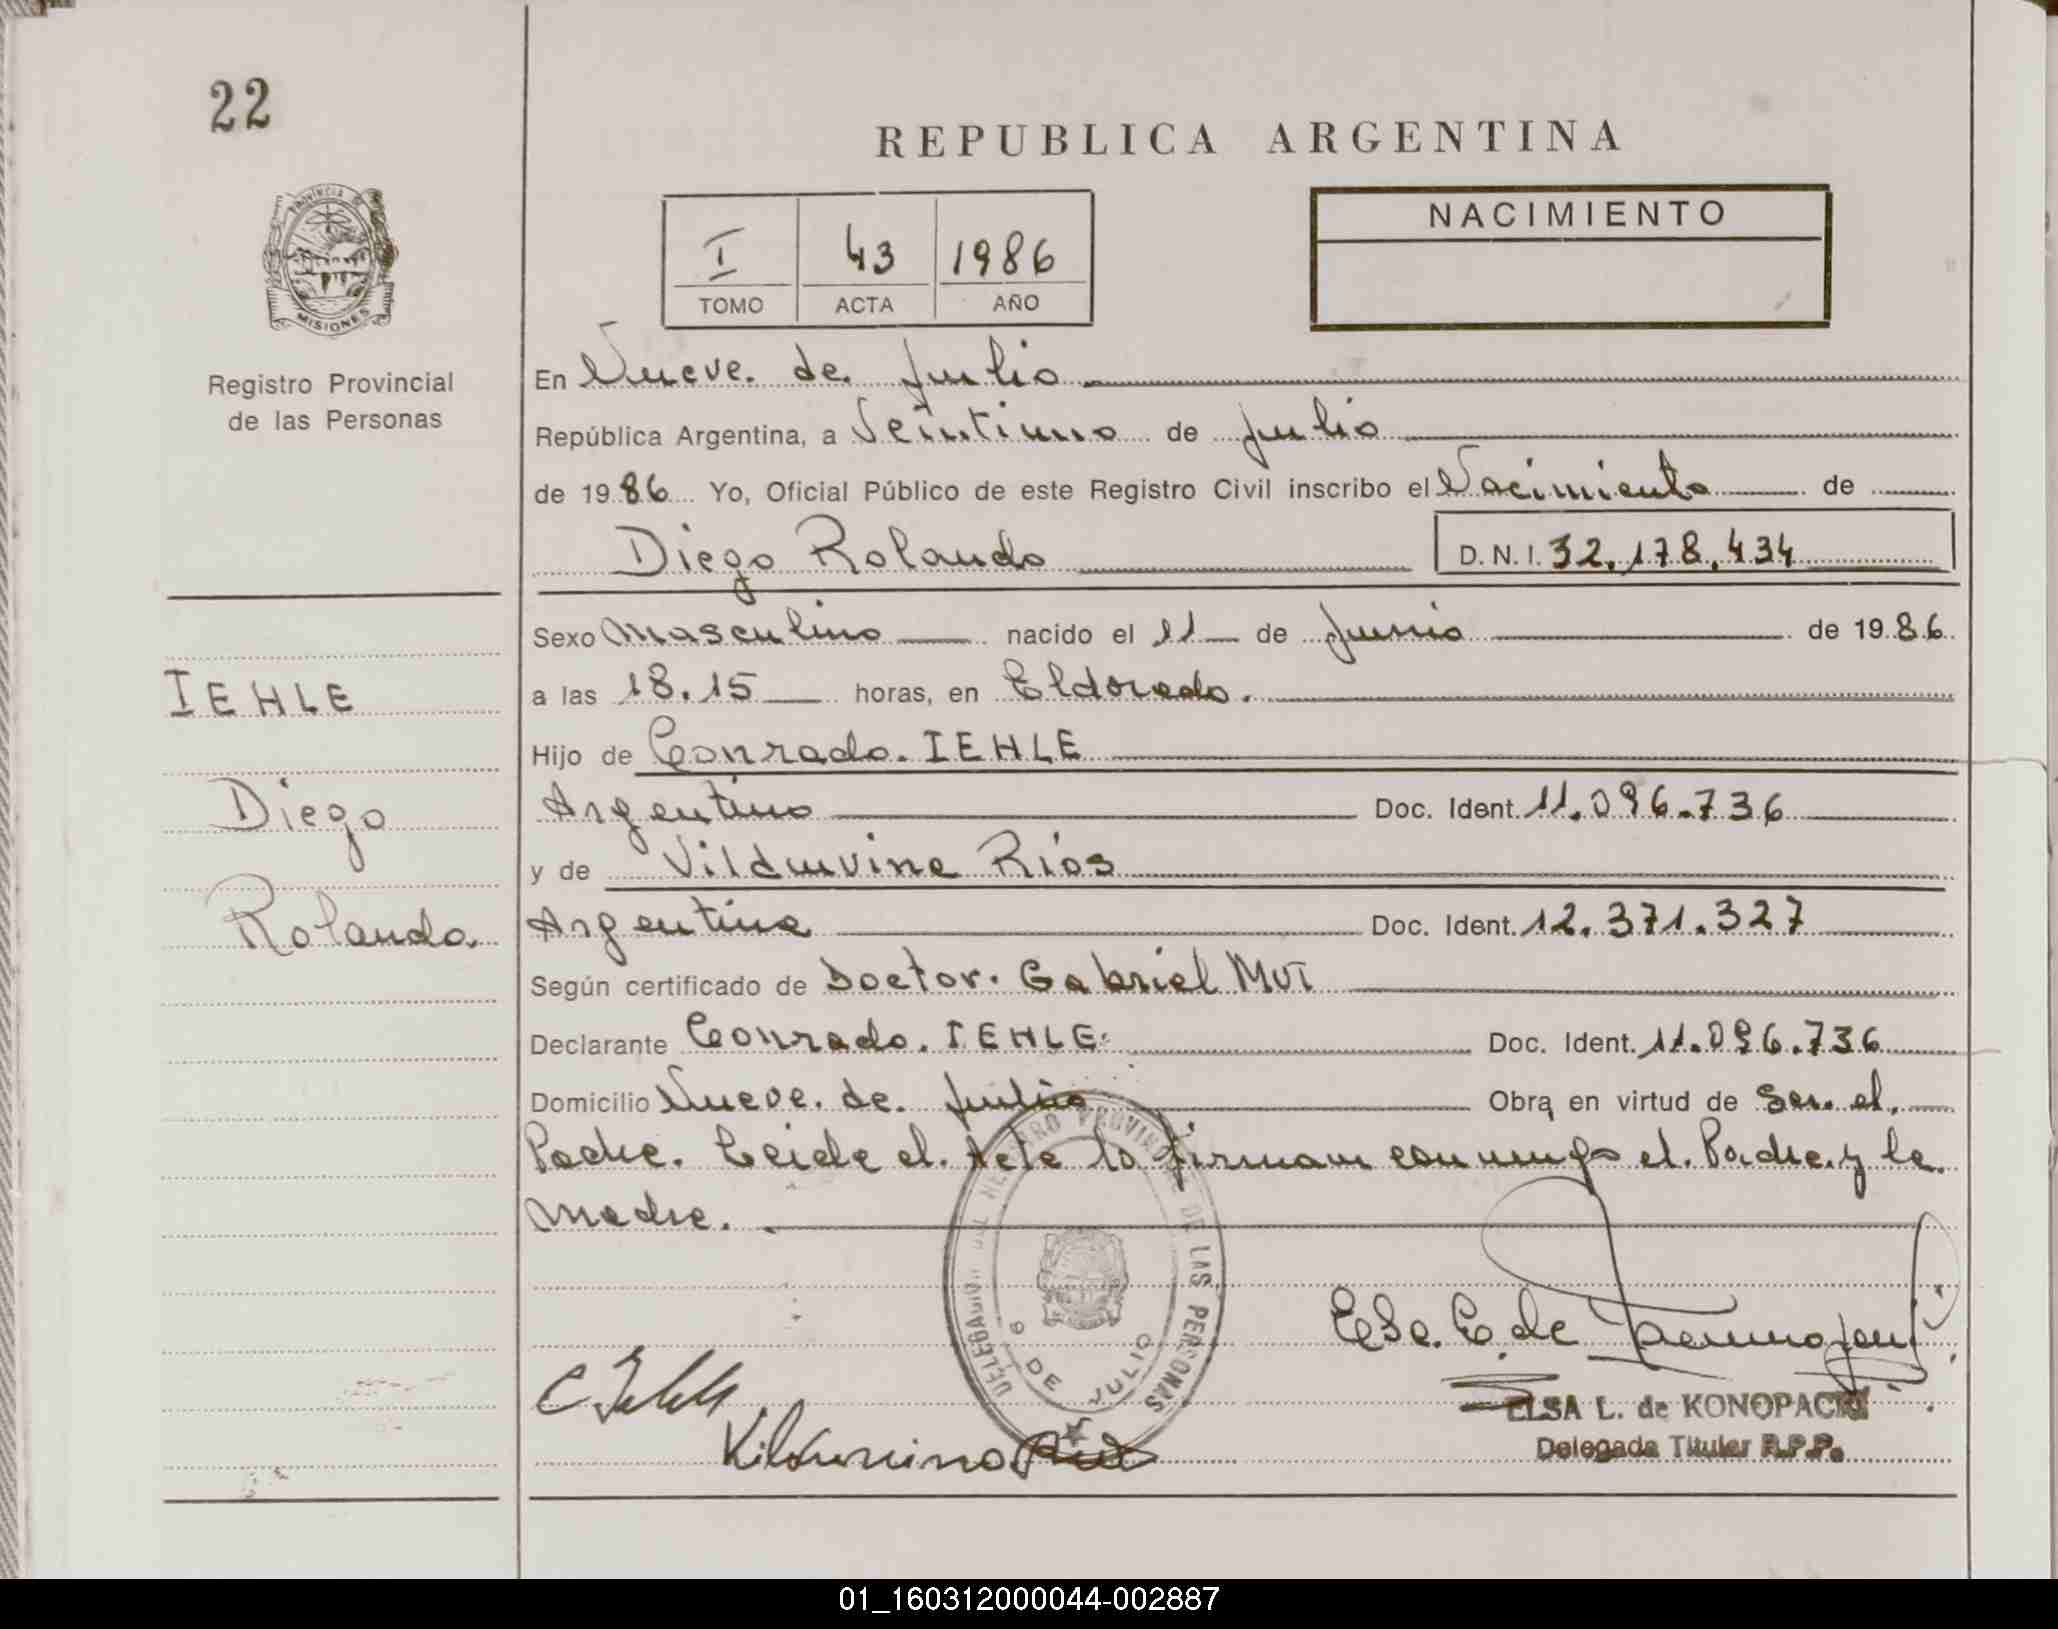 22
PROVINCIA DE
MISIONES
Registro Provincial
de las Personas
IEHLE
Diego
Rolando
REPUBLICA ARGENTINA
I 43 1986
TOMO ACTA AÑO
NACIMIENTO
En Nueve de Julio
República Argentina, a Veintiuno de Julio
de 1986 Yo, Oficial Público de este Registro Civil inscribo el Nacimiento de
Diego Rolando D.N.I. 32.178.434
Sexo Masculino nacido el 11 de Junio de 1986
a las 18.15 horas, en Eldorado.
Hijo de Conrado. IEHLE
Argentino Doc. Ident. 11.096.736
y de Vilduvina Ríos
Argentina Doc. Ident. 12.371.327
Según certificado de Doctor. Gabriel MUT
Declarante Conrado. IEHLE. Doc. Ident. 11.096.736
Domicilio Nueve. de. Julio Obra en virtud de Ser. el.
Padre. Leida el. Acta la firman conmigo el. Padre. y la
Madre.
DELEGACION DEL REGISTRO PROVINCIAL DE LAS PERSONAS
9 DE JULIO
ELSA L. de KONOPACKI
Delegada Titular R.P.P.
01_160312000044-002887